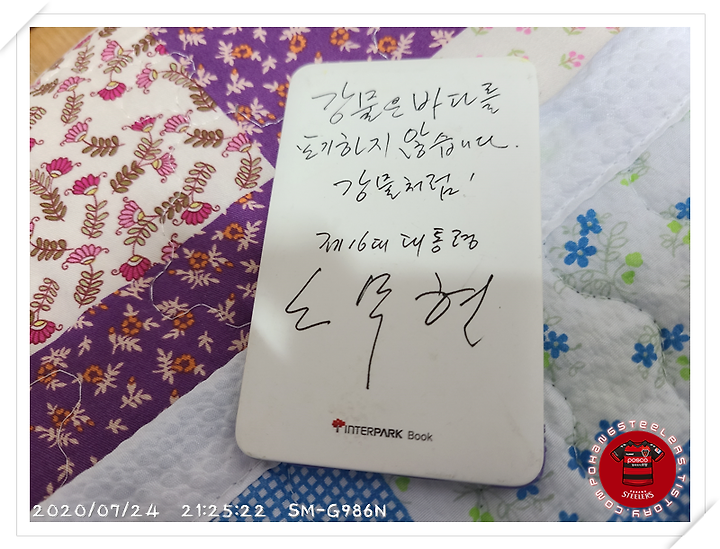 강물은 바다를
포기하지 않습니다.
강물처럼!
제16대 대통령
노무현
INTERPARK Book
POHANGSTEELERS.TISTORY.COM
posco
STEELERS
2020/07/24 21:25:22 SM-G986N